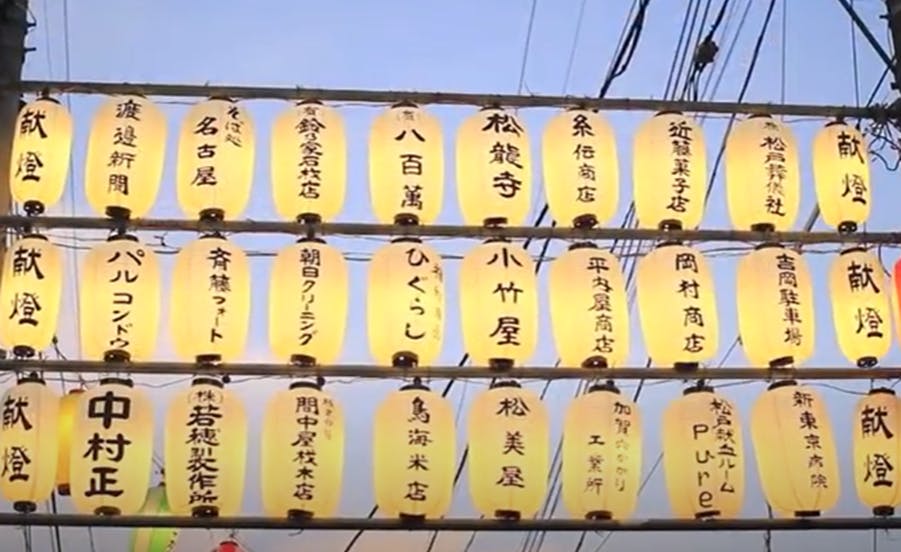 献燈
渡邉新聞
そば処
名古屋
石材店
八百萬
松龍寺
糸伝商店
近藤菓子店
松戸葬儀社
献燈
献燈
パルコンドウ
斉藤フォート
朝日クリーニング
ひぐらし
小竹屋
平内屋商店
岡村商店
吉岡駐車場
献燈
献燈
中村正
(株)若穂製作所
間中屋材木店
鳥海米店
松美屋
加賀
工業所
松戸献血ルーム
pure
新東京病院
献燈